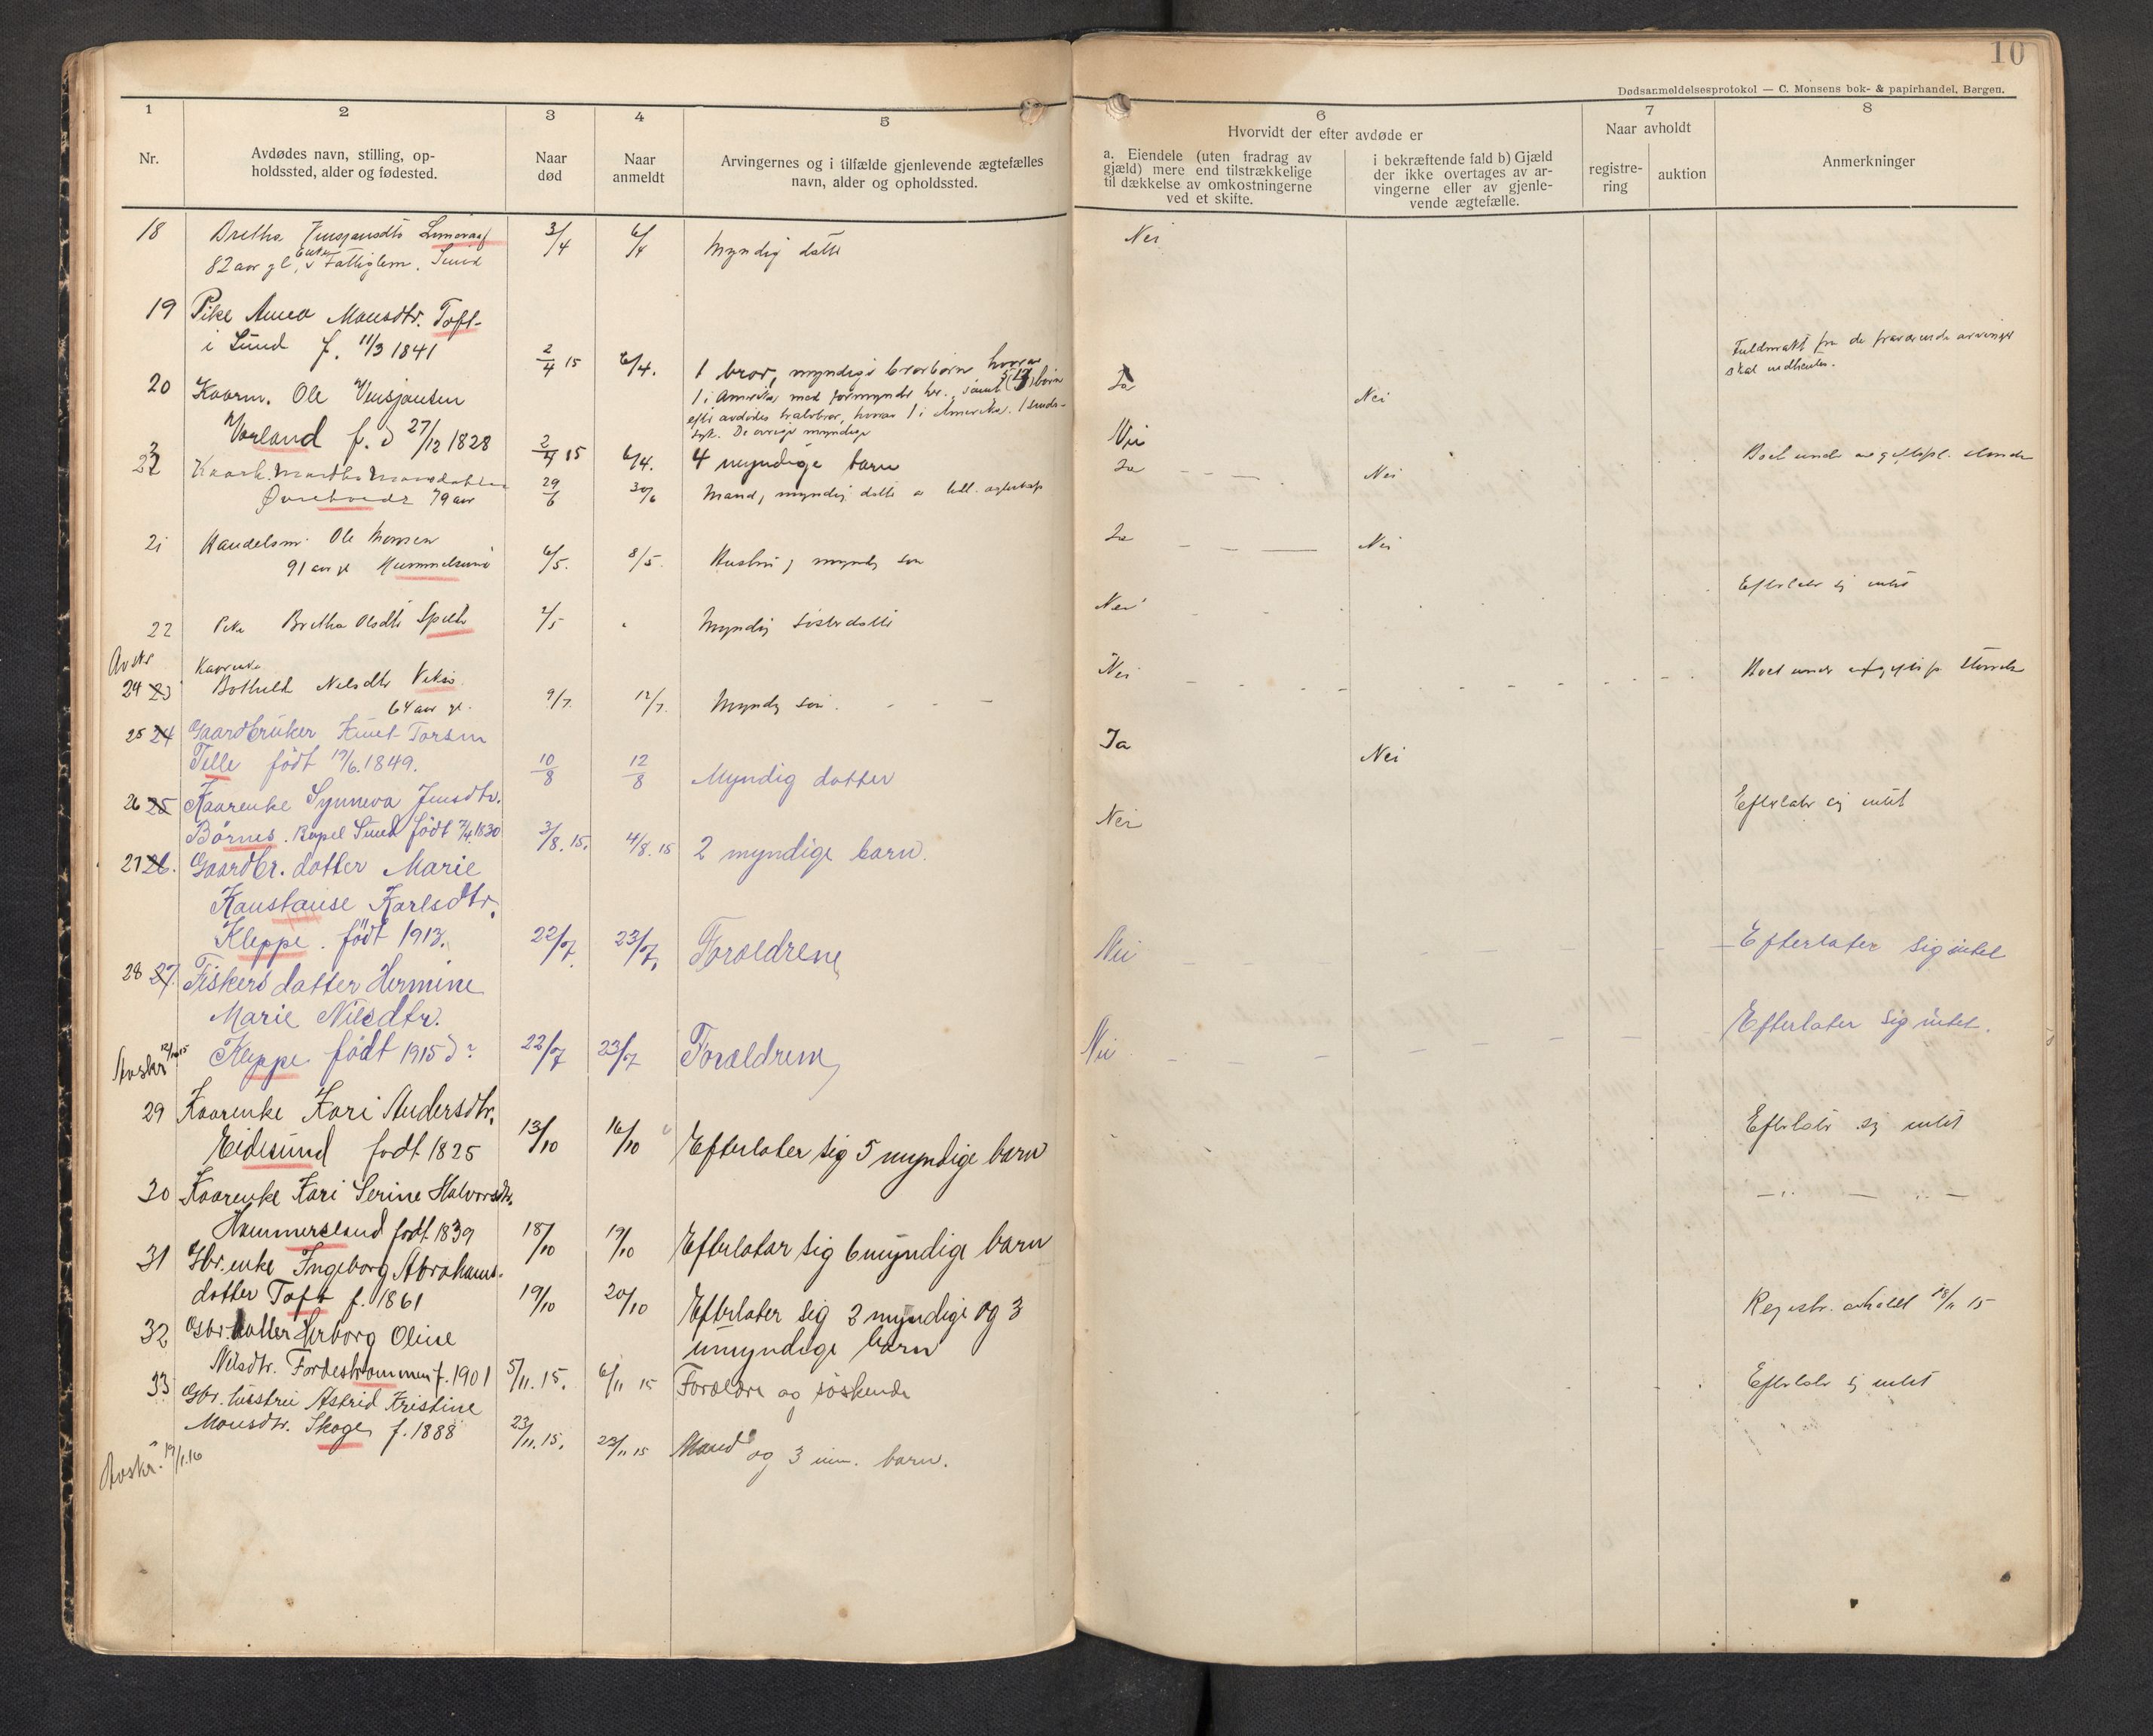 10
Dødsanmeldelsesprotokol — C. Monsens bok- & papirhandel, Bergen.
1
Nr.
2
Avdødes navn, stilling, op-
holdssted, alder og fødested.
3
Naar
død
4
Naar
anmeldt
5
Arvingernes og i tilfælde gjenlevende ægtefælles
navn, alder og opholdssted.
6
Hvorvidt der efter avdøde er
a. Eiendele (uten fradrag av
gjæld) mere end tilstrækkelige
til dækkelse av omkostningerne
ved et skifte.
i bekræftende fald b) Gjæld
der ikke overtages av ar-
vingerne eller av gjenle-
vende ægtefælle.
7
Naar avholdt
registre-
ring
auktion
8
Anmerkninger
18 Bretha 3/4 6/4 Myndig datter Nei
82 aar gl, Fattiglem. Sund
19 Pike Anna Monsdtr. Toft-
i Sund f. 11/3 1841 2/4 15 6/4. 1 bror, myndige brorbørn hvorav
1 i Amerika med formynder her, samt børn Ja Nei
efter avdødes halvbror, hvorav 1 i Amerika. 1 sinds-
syk. De øvrige myndige
Fuldmakt fra de fraværende arvinger
skal indhentes.
20 Kaarm. Ole Vensjansen
Vorland f. d 27/12 1828 2/4 15 6/4. 4 myndige barn Nei
23 Kaark. Martha Monsdatter
79 aar 29/6 30/6 Mand, myndig datter av tidl. egteskap Ja Nei
21 Handelsm. Ole Monsen
91 aar gl Hummelsund 6/5. 8/5. Hustru, myndig søn Ja Nei
22 Pike Bretha Olsdtr Spilde 2/5 Myndig søsterdatter Nei Efterlater sig intet
Avskr
24 23 Kaarenke
Bothild Nilsdtr Vikso
64 aar gl. 9/7. 12/7. Myndig søn. Nei
25 24 Gaardbruker Knut Torsen
Telle født 19/6. 1849. 10/8 12/8 Myndig datter Ja Nei
26 25 Kaarenke Synneva Jensdtr.
Børnes. Kapel Sund født 7/4. 1830 3/8. 15. 4/8. 15 2 myndige barn. Nei Efterlater sig intet
27 26. Gaardbr. datter Marie
Konstanse Karlsdtr.
Kleppe. født 1913. 22/7. 23/7. Forældrene Nei Efterlater sig intet
28 27. Fiskers datter Hermine
Marie Nilsdtr.
Kleppe født 1915 22/7 23/7 Forældrene Nei Efterlater sig intet.
Avskr
29 Kaarenke Kari Andersdtr.
Eidesund født 1825 13/10 16/10 Efterlater sig 5 myndige barn Efterlater sig intet
30 Kaarenke Kari Serine Halvorsdtr.
Hammersland født 1839 18/10 19/10 Efterlater sig 6 myndige barn — „ — „ —
31 Gbr. enke Ingeborg Abrahams-
datter Toft f. 1861 19/10 20/10 Efterlater sig 2 myndige og 3
umyndige barn Registr. avholdt 18/11 15
32 Gbr. datter Herborg Oline
Nilsdtr. Fordestrommen f. 1901 5/11. 15. 6/11 15 Forældre og søskende Efterlater sig intet
33 Gbr. hustru Astrid Kristine
Monsdtr. Skoge f. 1888 23/11. 15. 23/11 15 Mand og 3 um. barn.
Avskr. 19/1.16